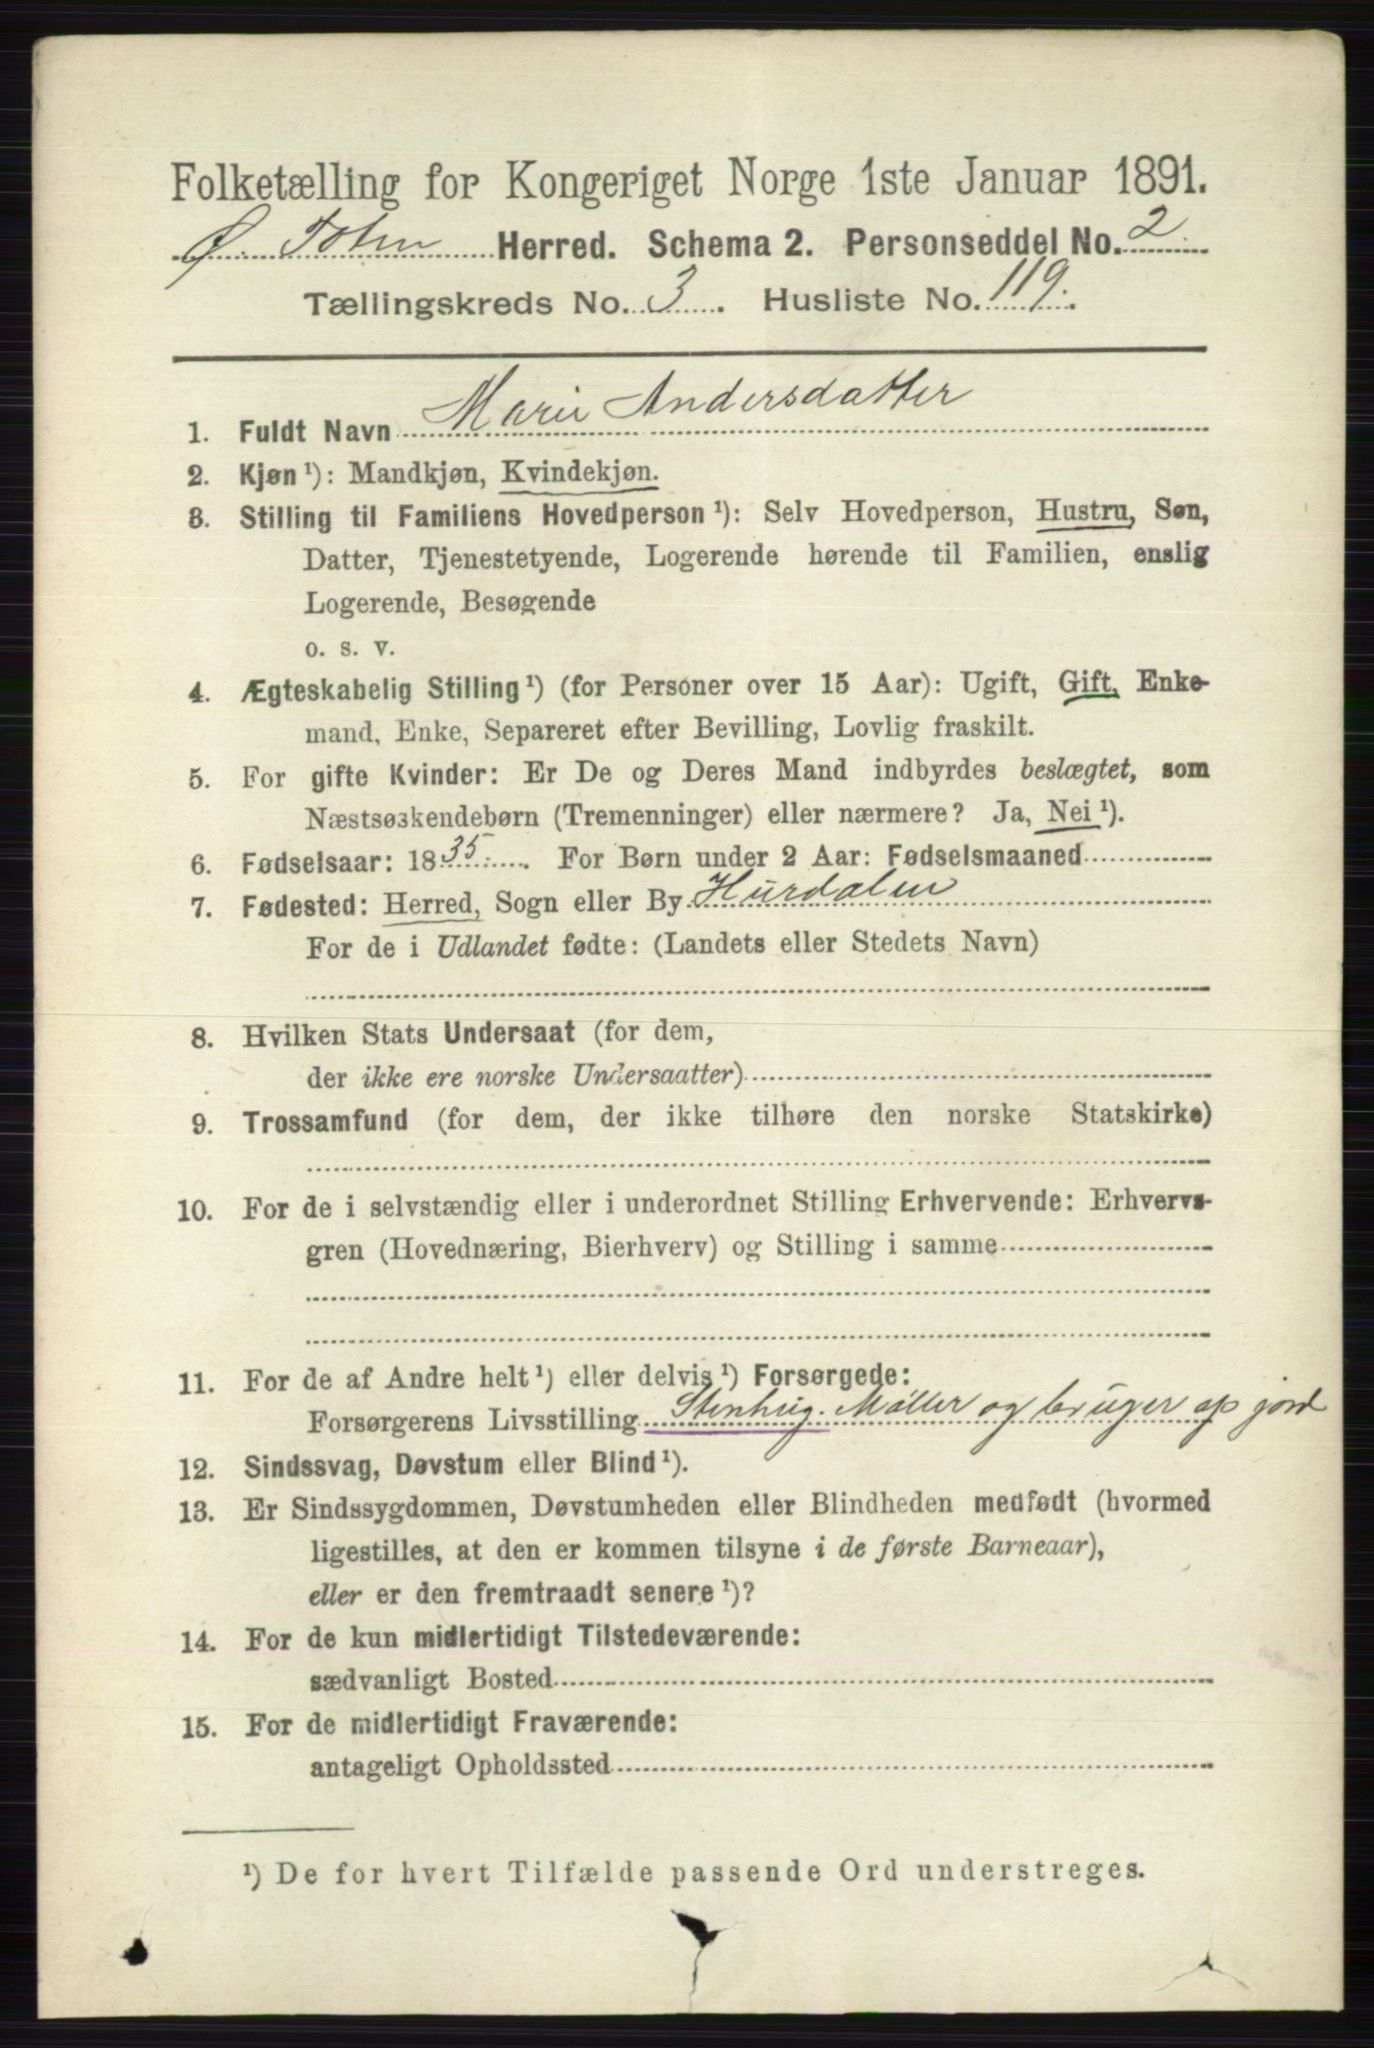 Folketælling for Kongeriget Norge 1ste Januar 1891.
Ø. Toten Herred. Schema 2. Personseddel No. 2
Tællingskreds No. 3. Husliste No. 119.
1. Fuldt Navn Marie Andersdatter
2. Kjøn ¹): Mandkjøn, Kvindekjøn.
3. Stilling til Familiens Hovedperson ¹): Selv Hovedperson, Hustru, Søn,
Datter, Tjenestetyende, Logerende hørende til Familien, enslig
Logerende, Besøgende
o. s. v.
4. Ægteskabelig Stilling ¹) (for Personer over 15 Aar): Ugift, Gift, Enke-
mand, Enke, Separeret efter Bevilling, Lovlig fraskilt.
5. For gifte Kvinder: Er De og Deres Mand indbyrdes beslægtet, som
Næstsøskendebørn (Tremenninger) eller nærmere? Ja, Nei ¹).
6. Fødselsaar: 1835. For Børn under 2 Aar: Fødselsmaaned
7. Fødested: Herred, Sogn eller By Hurdalen
For de i Udlandet fødte: (Landets eller Stedets Navn)
8. Hvilken Stats Undersaat (for dem,
der ikke ere norske Undersaatter)
9. Trossamfund (for dem, der ikke tilhøre den norske Statskirke)
10. For de i selvstændig eller i underordnet Stilling Erhvervende: Erhvervs-
gren (Hovednæring, Bierhverv) og Stilling i samme
11. For de af Andre helt ¹) eller delvis ¹) Forsørgede:
Forsørgerens Livsstilling Stenhug. Møller og bruger af jord
12. Sindssvag, Døvstum eller Blind ¹).
13. Er Sindssygdommen, Døvstumheden eller Blindheden medfødt (hvormed
ligestilles, at den er kommen tilsyne i de første Barneaar),
eller er den fremtraadt senere ¹)?
14. For de kun midlertidigt Tilstedeværende:
sædvanligt Bosted
15. For de midlertidigt Fraværende:
antageligt Opholdssted
¹) De for hvert Tilfælde passende Ord understreges.